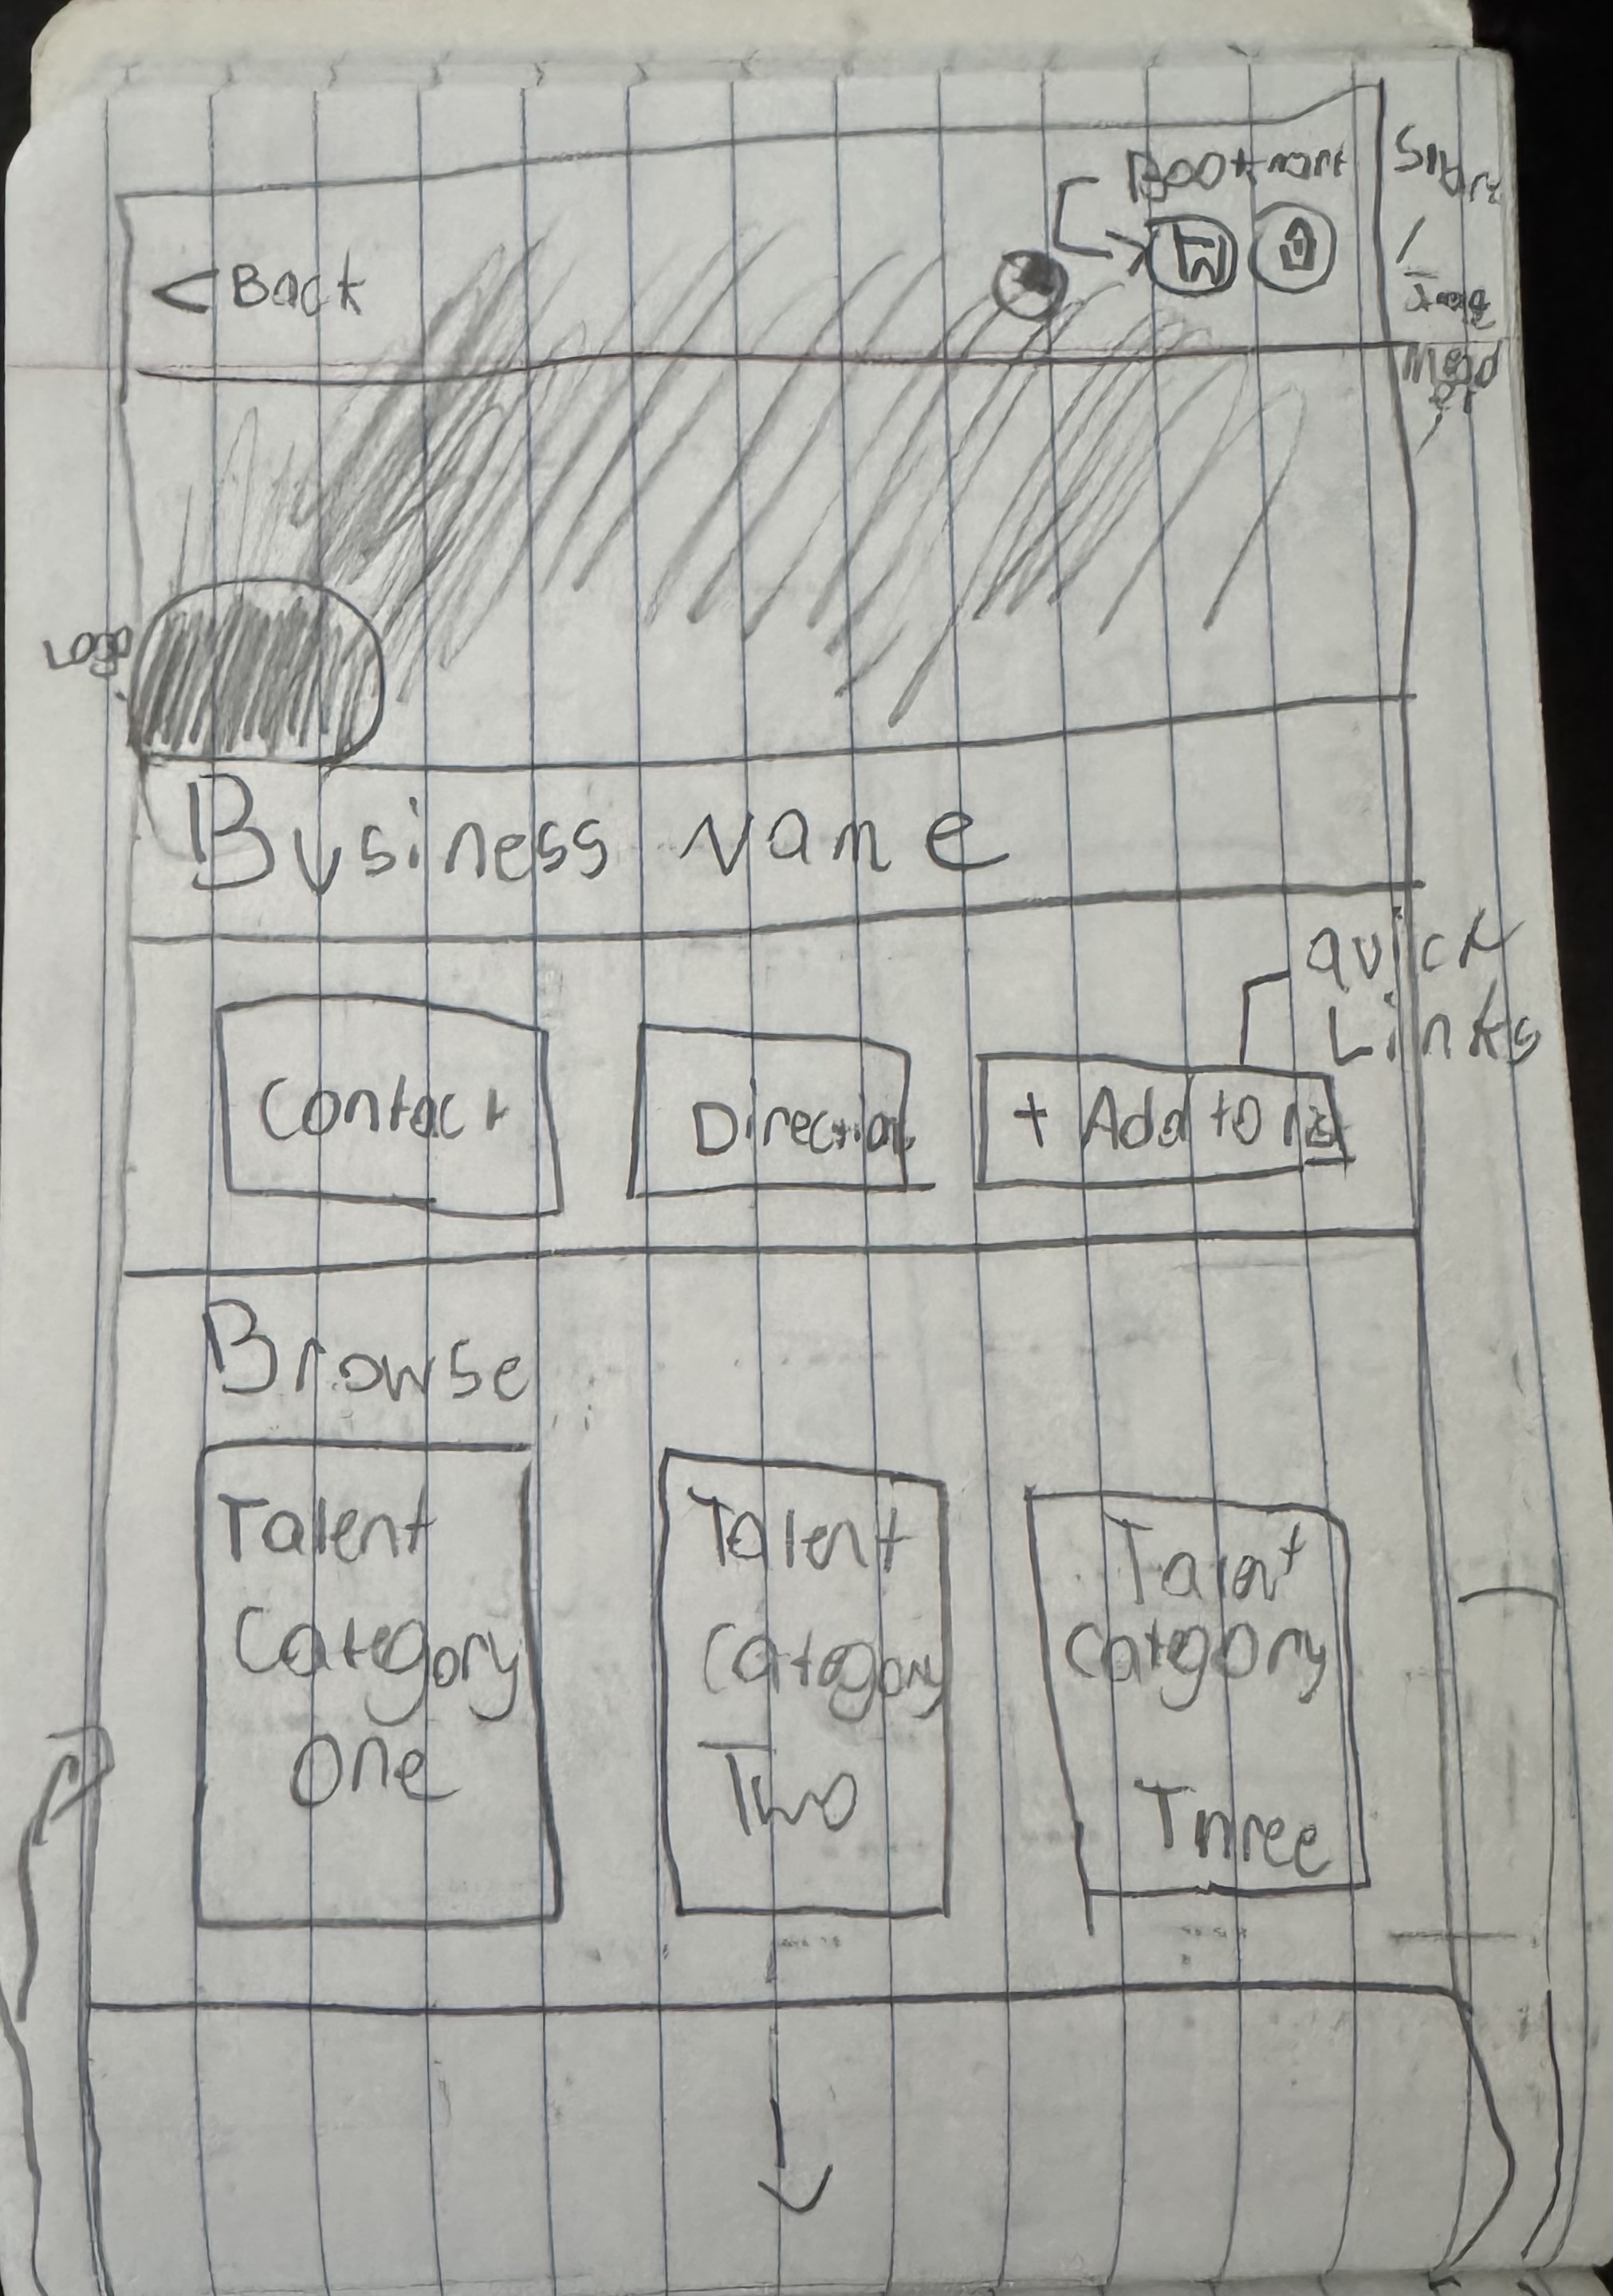 Bookmark
Share
/
< Back
Logo
Business name
Quick
Links
Contact
Direction
+ Add to
Browse
Talent
Category
One
Talent
Category
Two
Talent
Category
Three